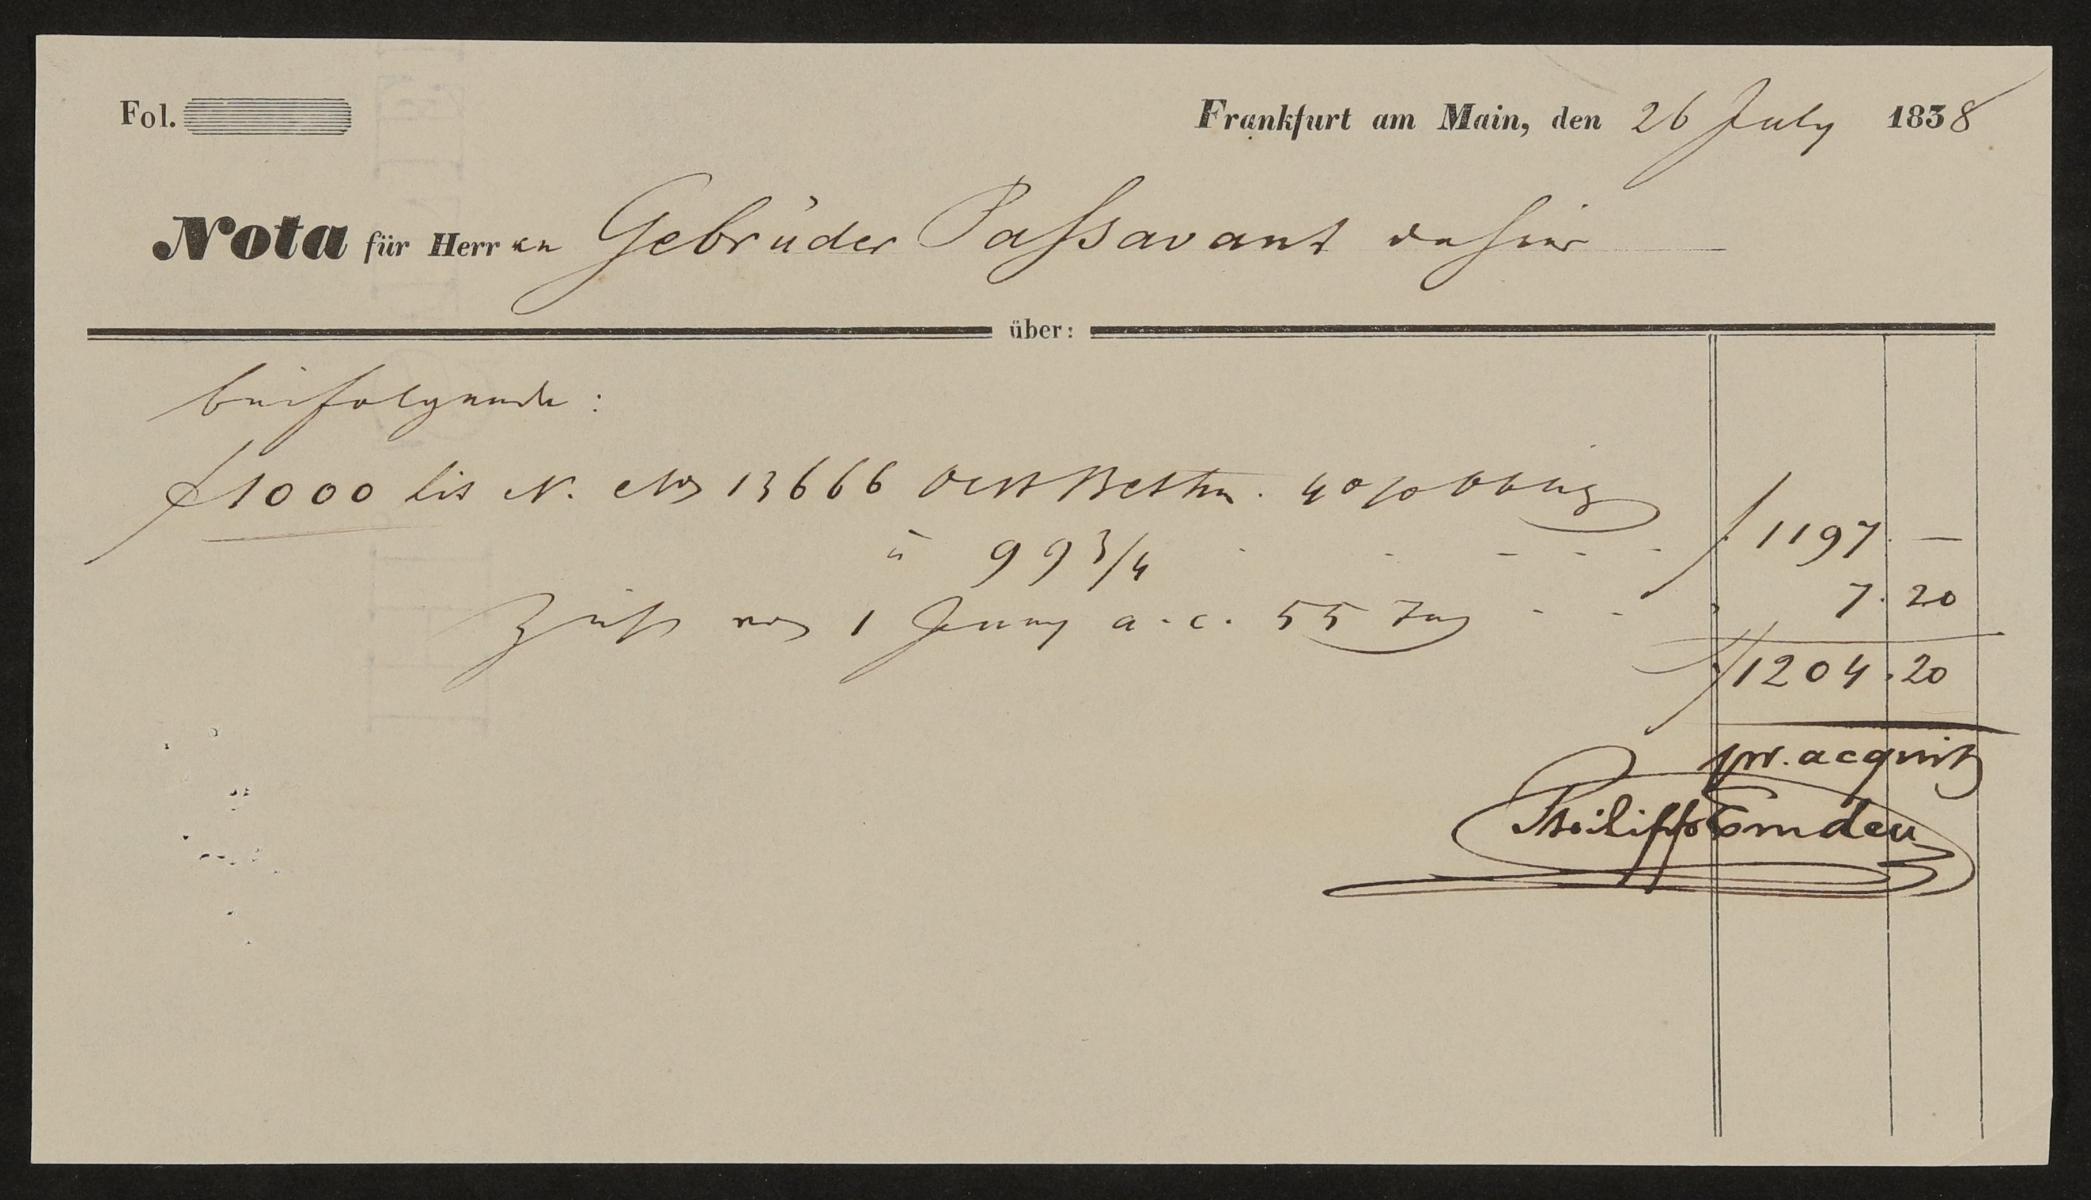 Fol.
Frankfurt am Main, den 26 July 1838
Nota für Herren Gebrüder Passavant dahier
über:
beifolgende:
f 1000 Lit N. No 13666 Oest Bethm. 4 % Oblig
à 99 3/4 - - - - - f 1197. —
Zinss von 1 Juny a. c. 55 Tag - - - 7. 20
f 1204. 20
pr. acquit
Philipp Emden